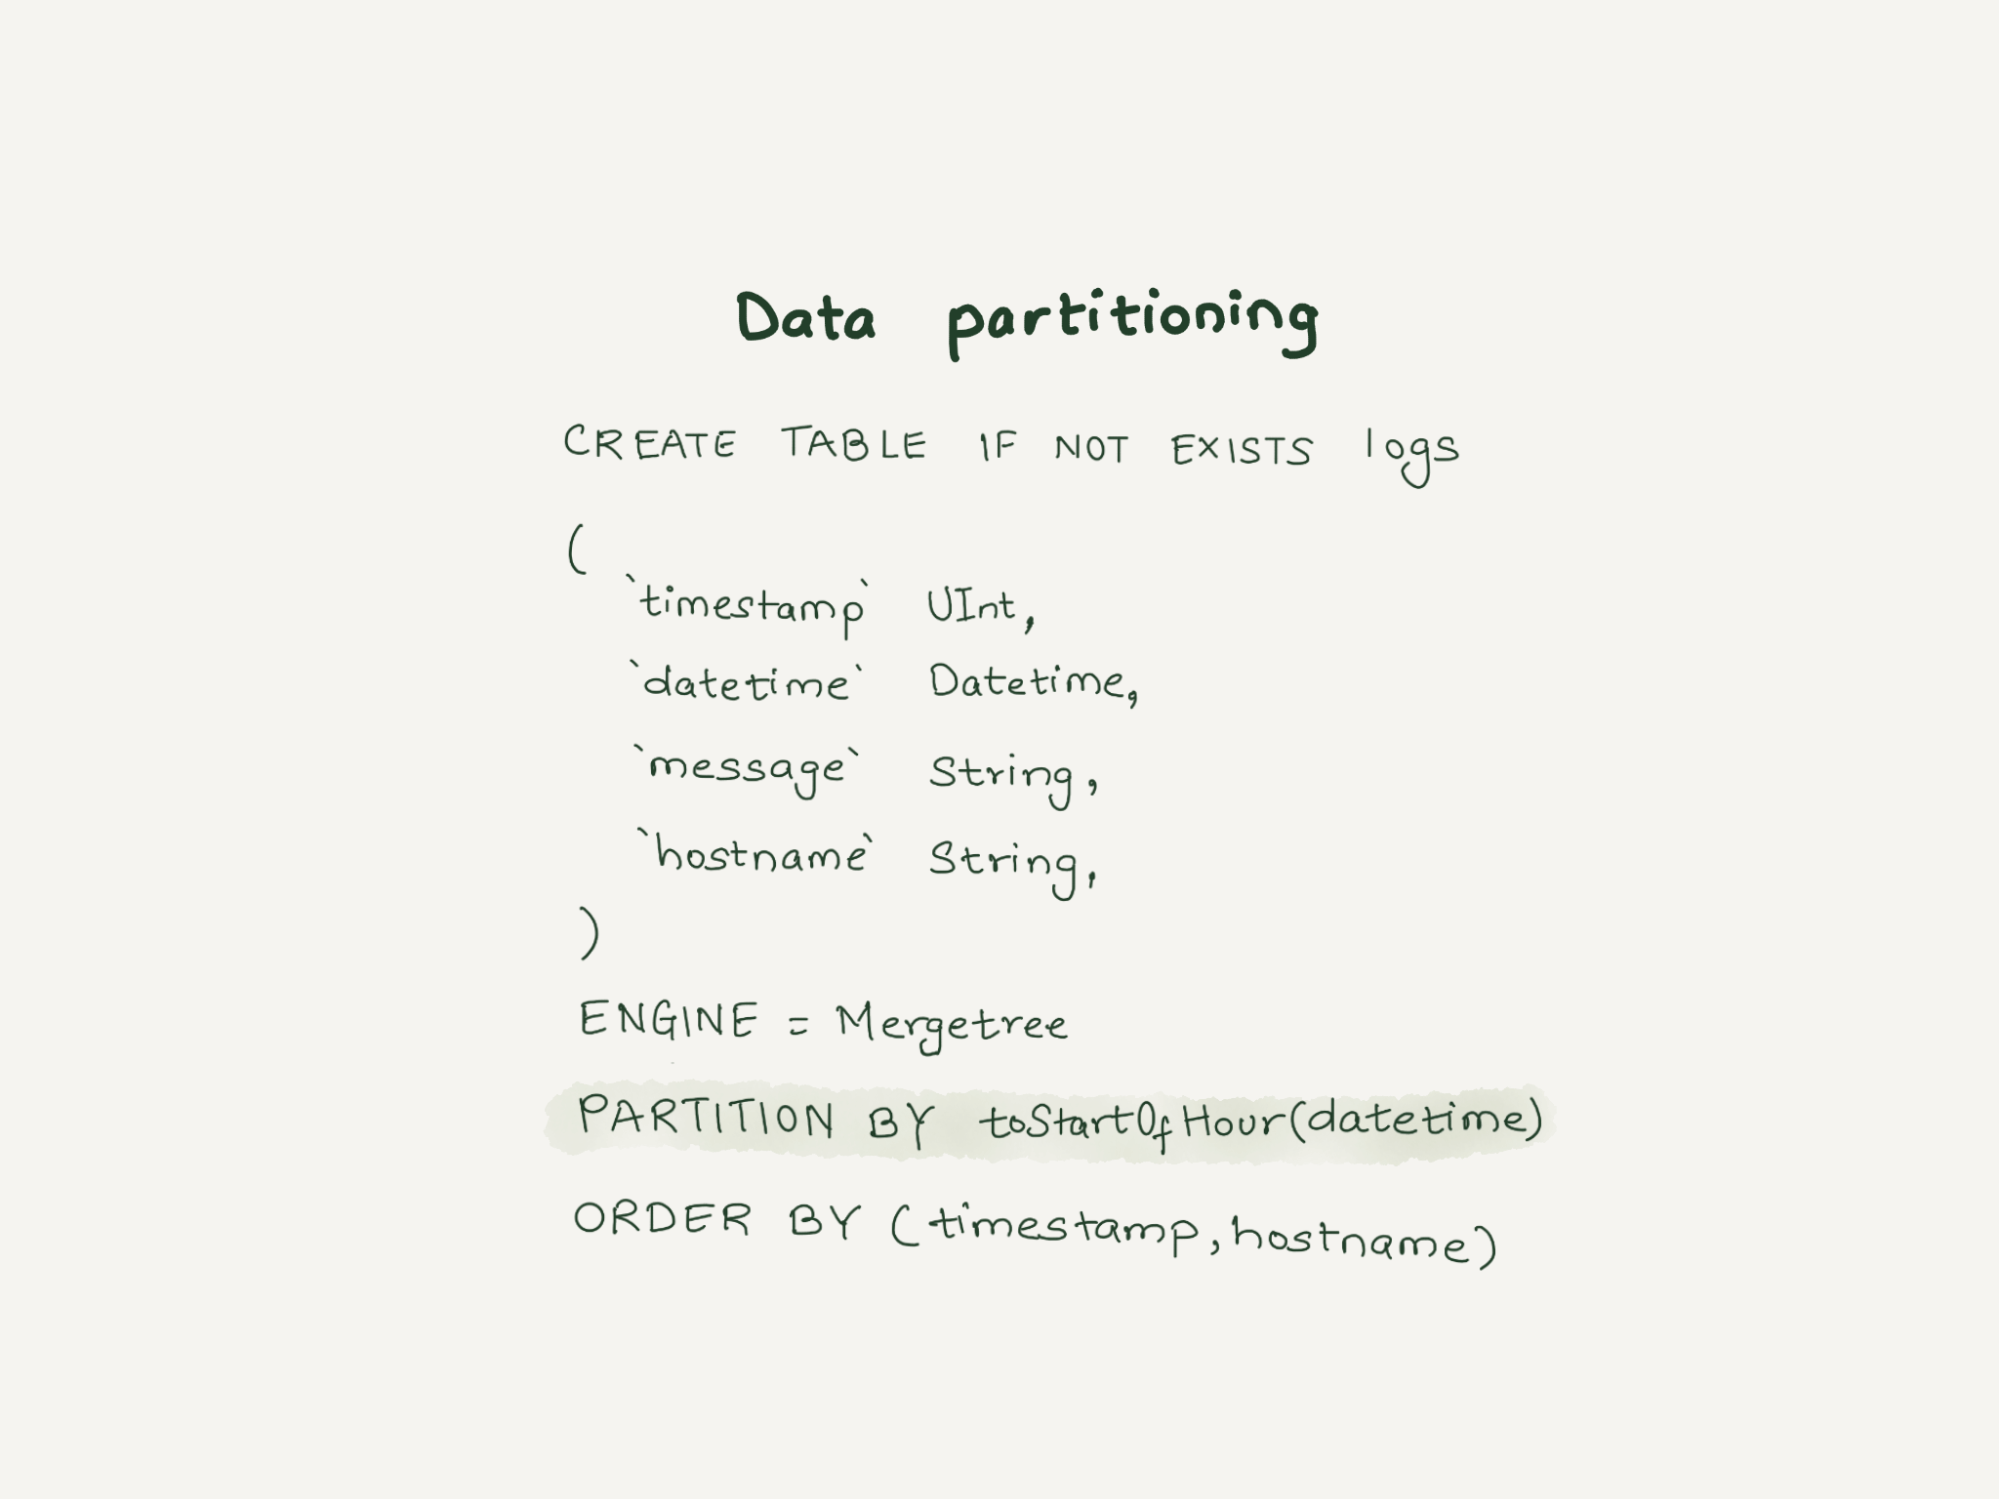 Data partitioning
CREATE TABLE IF NOT EXISTS logs
(
`timestamp` UInt,
`datetime` Datetime,
`message` String,
`hostname` String,
)
ENGINE = Mergetree
PARTITION BY toStartOfHour(datetime)
ORDER BY (timestamp, hostname)